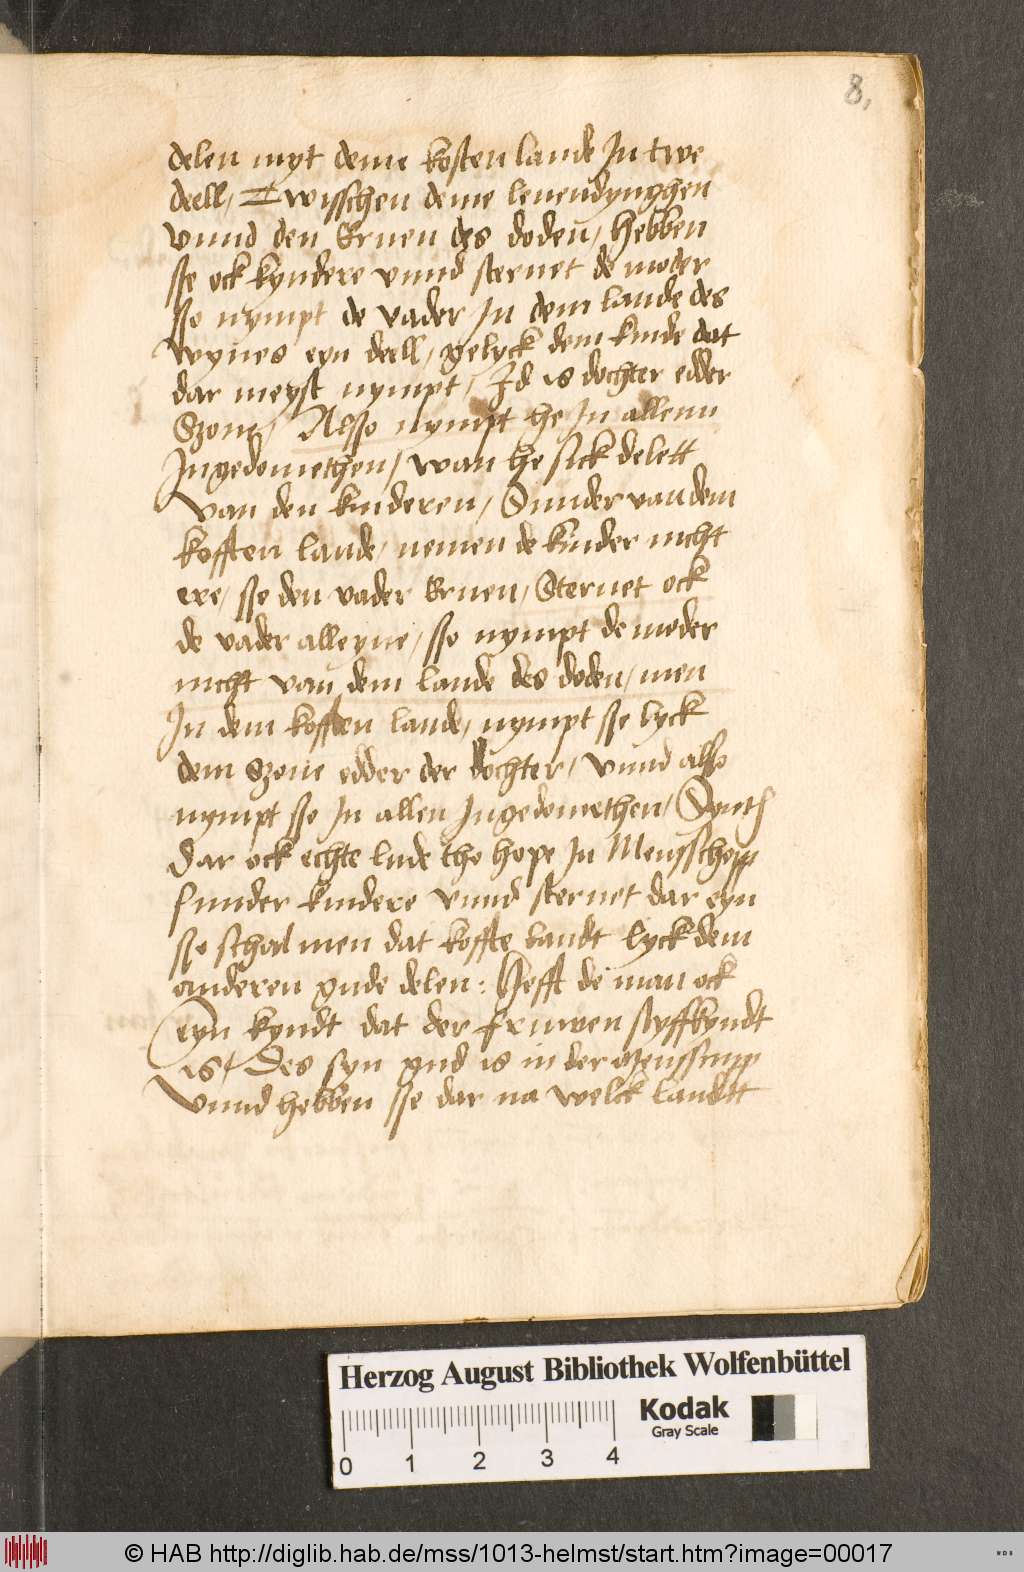 8,
delen myt deme kosten lande In twe
deell, Twisschen deme leuendynghen
vnnd den Eruen des doden, hebben
sse ock kyndere vnnd steruet de moder
sso nympt de vader In dem lande des
wyues eyn deell, gelyck dem kinde dat
dar meyst nympt, Id is dochter edder
Szone, Alsso nympt he In allenn
Ingedomethen, wan he sick delett
van den kinderen, Sunder van dem
kofften lande, nemen de kinder nicht
ere, sse den vader Eruen, Steruet ock
de vader alleyne, sso nympt de moder
nicht van dem lande des doden, men
In dem kofften lande, nympt sse lyck
dem Szone edder der dochter, vnnd alsso
nympt sse In allen Ingedomethen, Synth
dar ock echte lude tho hope In Mensschopp
sunder kindere vnnd steruet dar eyn
sso schal men dat koffte landt lyck dem
anderen gude delen: Hefft de man ock
eyn kyndt dat der fruwen styffkyndt
is, Des syn gud is in der
vnnd hebben sse dar na welck landtt
Herzog August Bibliothek Wolfenbüttel
Kodak
Gray Scale
0 1 2 3 4
© HAB http://diglib.hab.de/mss/1013-helmst/start.htm?image=00017